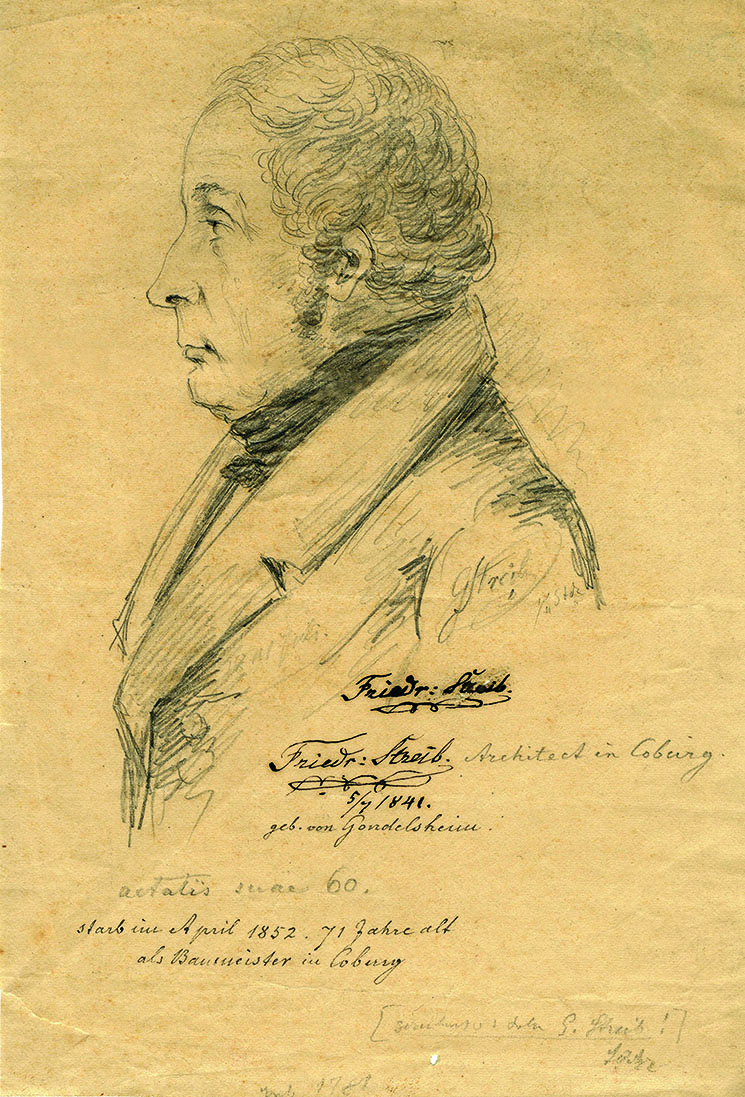 GStreib
Friedr: Streib.
Friedr: Streib. Architect in Coburg.
5/7 1841.
geb. von Gondelsheim.
aetatis suae 60.
starb im April 1852. 71 Jahre alt
als Baumeister in Coburg
G. Streib!]
1781